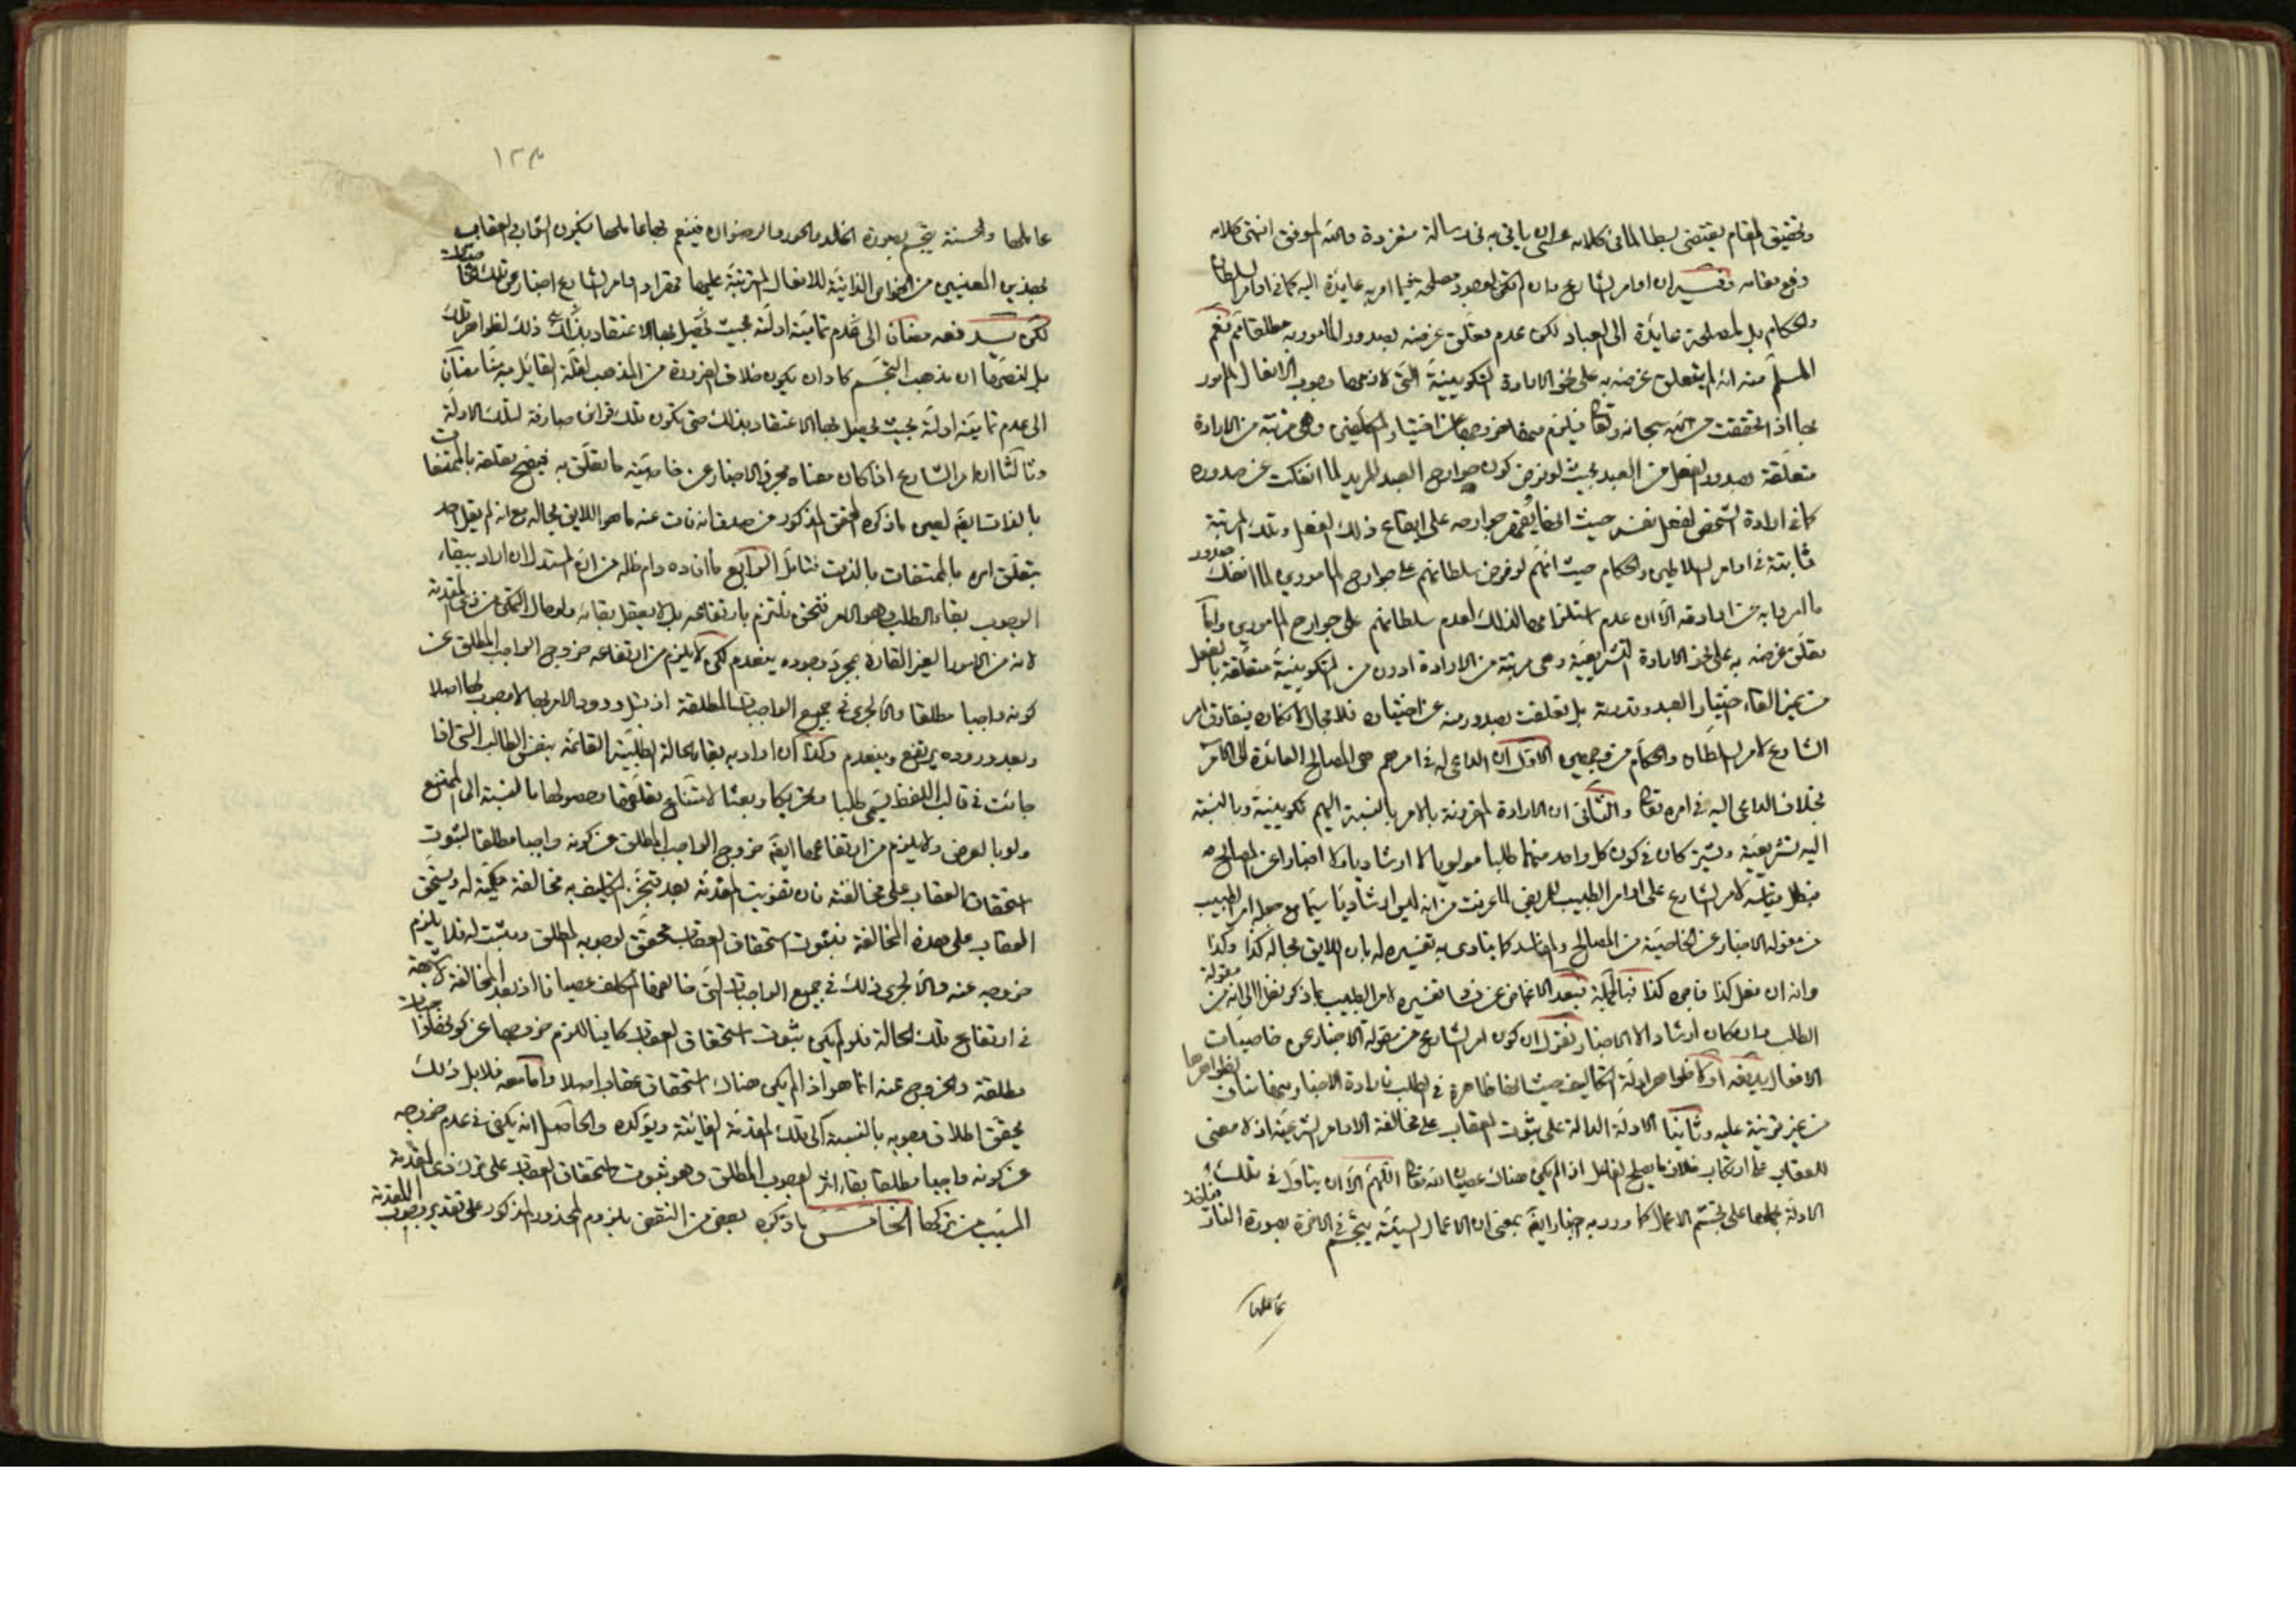 وتحقيق المقام يقتضى بسطا لما فى كلامه عسى ان ياتى به فى رسالة منفردة والله الموفق انتهى كلامه
رفع مقامه وفيه ان اوامر الشارع وان لم تكن لوجود مصلحة فيما امر به عايدة اليه كما فى اوامر السلطان
والحكام بل المصلحة عايدة الى العباد لكن عدم تعلق غرضه بصدور المامور به مطلقا ثم نعم
المسلم منه انه لم يتعلق غرضه به على نحو الارادة التكوينية التى لازمها وجوب الافعال المامور
بها اذا تحققت من الله سبحانه وتعالى فيلزم منها خروجها عن اختيار المكلفين وهى مرتبة من الارادة
متعلقة بصدور الفعل من العبد بحيث لو فرض كون جوارح العبد للمريد لما انفكت عن صدوره
كما فى ارادة الشخص لفعل نفسه حيث انها يقهر جوارحه على ايقاع ذلك الفعل وتلك المرتبة
ثابتة فى اوامر السلاطين والحكام حيث انهم لو فرض سلطانهم على جوارح المامورين لما انفك صدور
ما امروا به عن ارادته الا ان عدم استلزامها لذلك لعدم سلطانهم على جوارح المامورين واما
تعلق غرضه به على نحو الارادة التشريعية وهى مرتبة من الارادة ادون من التكوينية متعلقة بالفعل
من غير القاء اختيار العبد وقدرته بل تعلقت بصدوره منه عن اختياره فلا مجال لانكاره فيفارق امر
الشارع لامر السلطان والحكام من وجهين الاول ان الداعى له فى امرهم هى المصالح العائدة الى الآمر
بخلاف الداعى اليه فى امره تعالى والثانى ان الارادة المقرونة بالامر بالنسبة اليهم تكوينية وبالنسبة
اليه تشريعية ويشتركان فى كون كل واحد منهما طلبا مولويا لا ارشاديا ولا اخبارا عن المصالح
فبطل مقايسة لامر الشارع على اوامر الطبيب للمريض لما عرفت من انه ليس ارشاديا سيما مع جعله امر الطبيب
من مقولة الاخبار عن الخاصية من المصالح والمفاسد كما ينادى به تفسيره له بان اللايق بحاله كذا وكذا
وانه ان فعل كذا فاجره كذا فبالجملة فبعد الاغماض عن فساد تفسيره لامر الطبيب بما ذكر نظرا الى انه من مقولة
الطلب وان كان ارشادا لا الاخبار نقول ان كون امر الشارع من مقولة الاخبار عن خاصيات
الافعال يدفعه اولا ظواهر ادلة التكاليف حيث انها ظاهرة فى الطلب فارادة الاخبار منها مناف لظواهرها
من غير قرينة عليه وثانيا الادلة الدالة على ثبوت العقاب على مخالفة الاوامر الشرعية اذ لا معنى
للعقاب على ارتكاب خلاف ما يصلح لفاعل اذا لم يكن هناك عصيان الله تعالى اللهم الا ان يتاول فى تلك
الادلة بحملها على تجسم الاعمال كما ورد به اخبار ايضا بمعنى ان الاعمال السيئة يتجسم فى الاخرة بصورة النار
عاملها
١٢٣
عاملها والحسنة يتجسم بصورة الخلد والحور والرضوان فينعم بها عاملها فيكون الثواب والعقاب
بهذين المعنيين من الخواص الذاتية للافعال المترتبة عليها فمفاد اوامر الشارع اخبار عن تلك الخاصيات
لكن يدفعه مضافا الى عدم تمامية ادلته بحيث يحصل بها الاعتقاد بذلك
بل لنصوصها ان مذهب التجسم كاد ان يكون خلاف الضرورة من المذهب لقلة القائل به منا مضافا
الى عدم تمامية ادلته بحيث يحصل بها الاعتقاد بذلك حتى تكون تلك قرائن صارفة لتلك الادلة
وثالثا ان امر الشارع اذا كان معناه مجرد الاخبار عن خاصية ما تعلق به فيصح تعلقه بالممتنعات
بالذات ايضا لعين ما ذكره المحقق المذكور من صدق انه فات عنه ما هو اللايق بحاله مع انه لم يقل احد
بتعلق امره بالممتنعات بالذات فتامل الرابع ما افاده دام ظله من ان المستدل ان اراد ببقاء
الوجوب بقاء الطلب وهو الامر فنحن نلتزم بارتفاعه بل لا يعقل بقائه ولو حال التمكن من ذى المقدمة
لانه من الامور الغير القارة بمجرد وجوده ينعدم لكن لا يلزم من ارتفاعه خروج الواجب المطلق عن
كونه واجبا مطلقا والا لجرى فى جميع الواجبات المطلقة اذ قبل ورود الامر بها لا وجوب لها اصلا
وبعد وروده يرتفع وينعدم وكذا ان اراد به بقاء الحالة الطلبية القائمة بنفس الطالب التى اذا
جائت فى قالب اللفظ يسمى طلبا وتحريكا وبعثا لامتناع تعلقها وحصولها بالنسبة الى الممتنع
ولو بالعرض ولا يلزم من ارتفاعها ايضا خروج الواجب المطلق عن كونه واجبا مطلقا لثبوت
استحقاق العقاب على مخالفته فان تفويت المقدمة بعد تنجز التكليف به مخالفة حكمية له ويستحق
العقاب على هذه المخالفة فبثبوت استحقاق العقاب تحقق لوجوبه المطلق ومثبت له فلا يلزم
خروجه عنه والا لجرى ذلك فى جميع الواجبات التى خالفها المكلف عصيانا اذ بعد المخالفة لا شبهة
فى ارتفاع تلك الحالة فلو لم يكن ثبوت استحقاق العقاب كافيا للزم خروجها عن كونها واجبات
مطلقة والخروج عنه انما هو اذا لم يكن هناك استحقاق عقاب اصلا واما معه فلا بل ذلك
يحقق اطلاق وجوبه بالنسبة الى تلك المقدمة الفائتة ويؤكده والحاصل انه يكفى فى عدم خروجه
عن كونه واجبا مطلقا بقاء اثر الوجوب المطلق وهو ثبوت استحقاق العقاب على ترك ذى المقدمة
المسبب من تركها الخامس ما ذكره بعض من النقض بلزوم المحذور المذكور على تقدير وجوب المقدمة